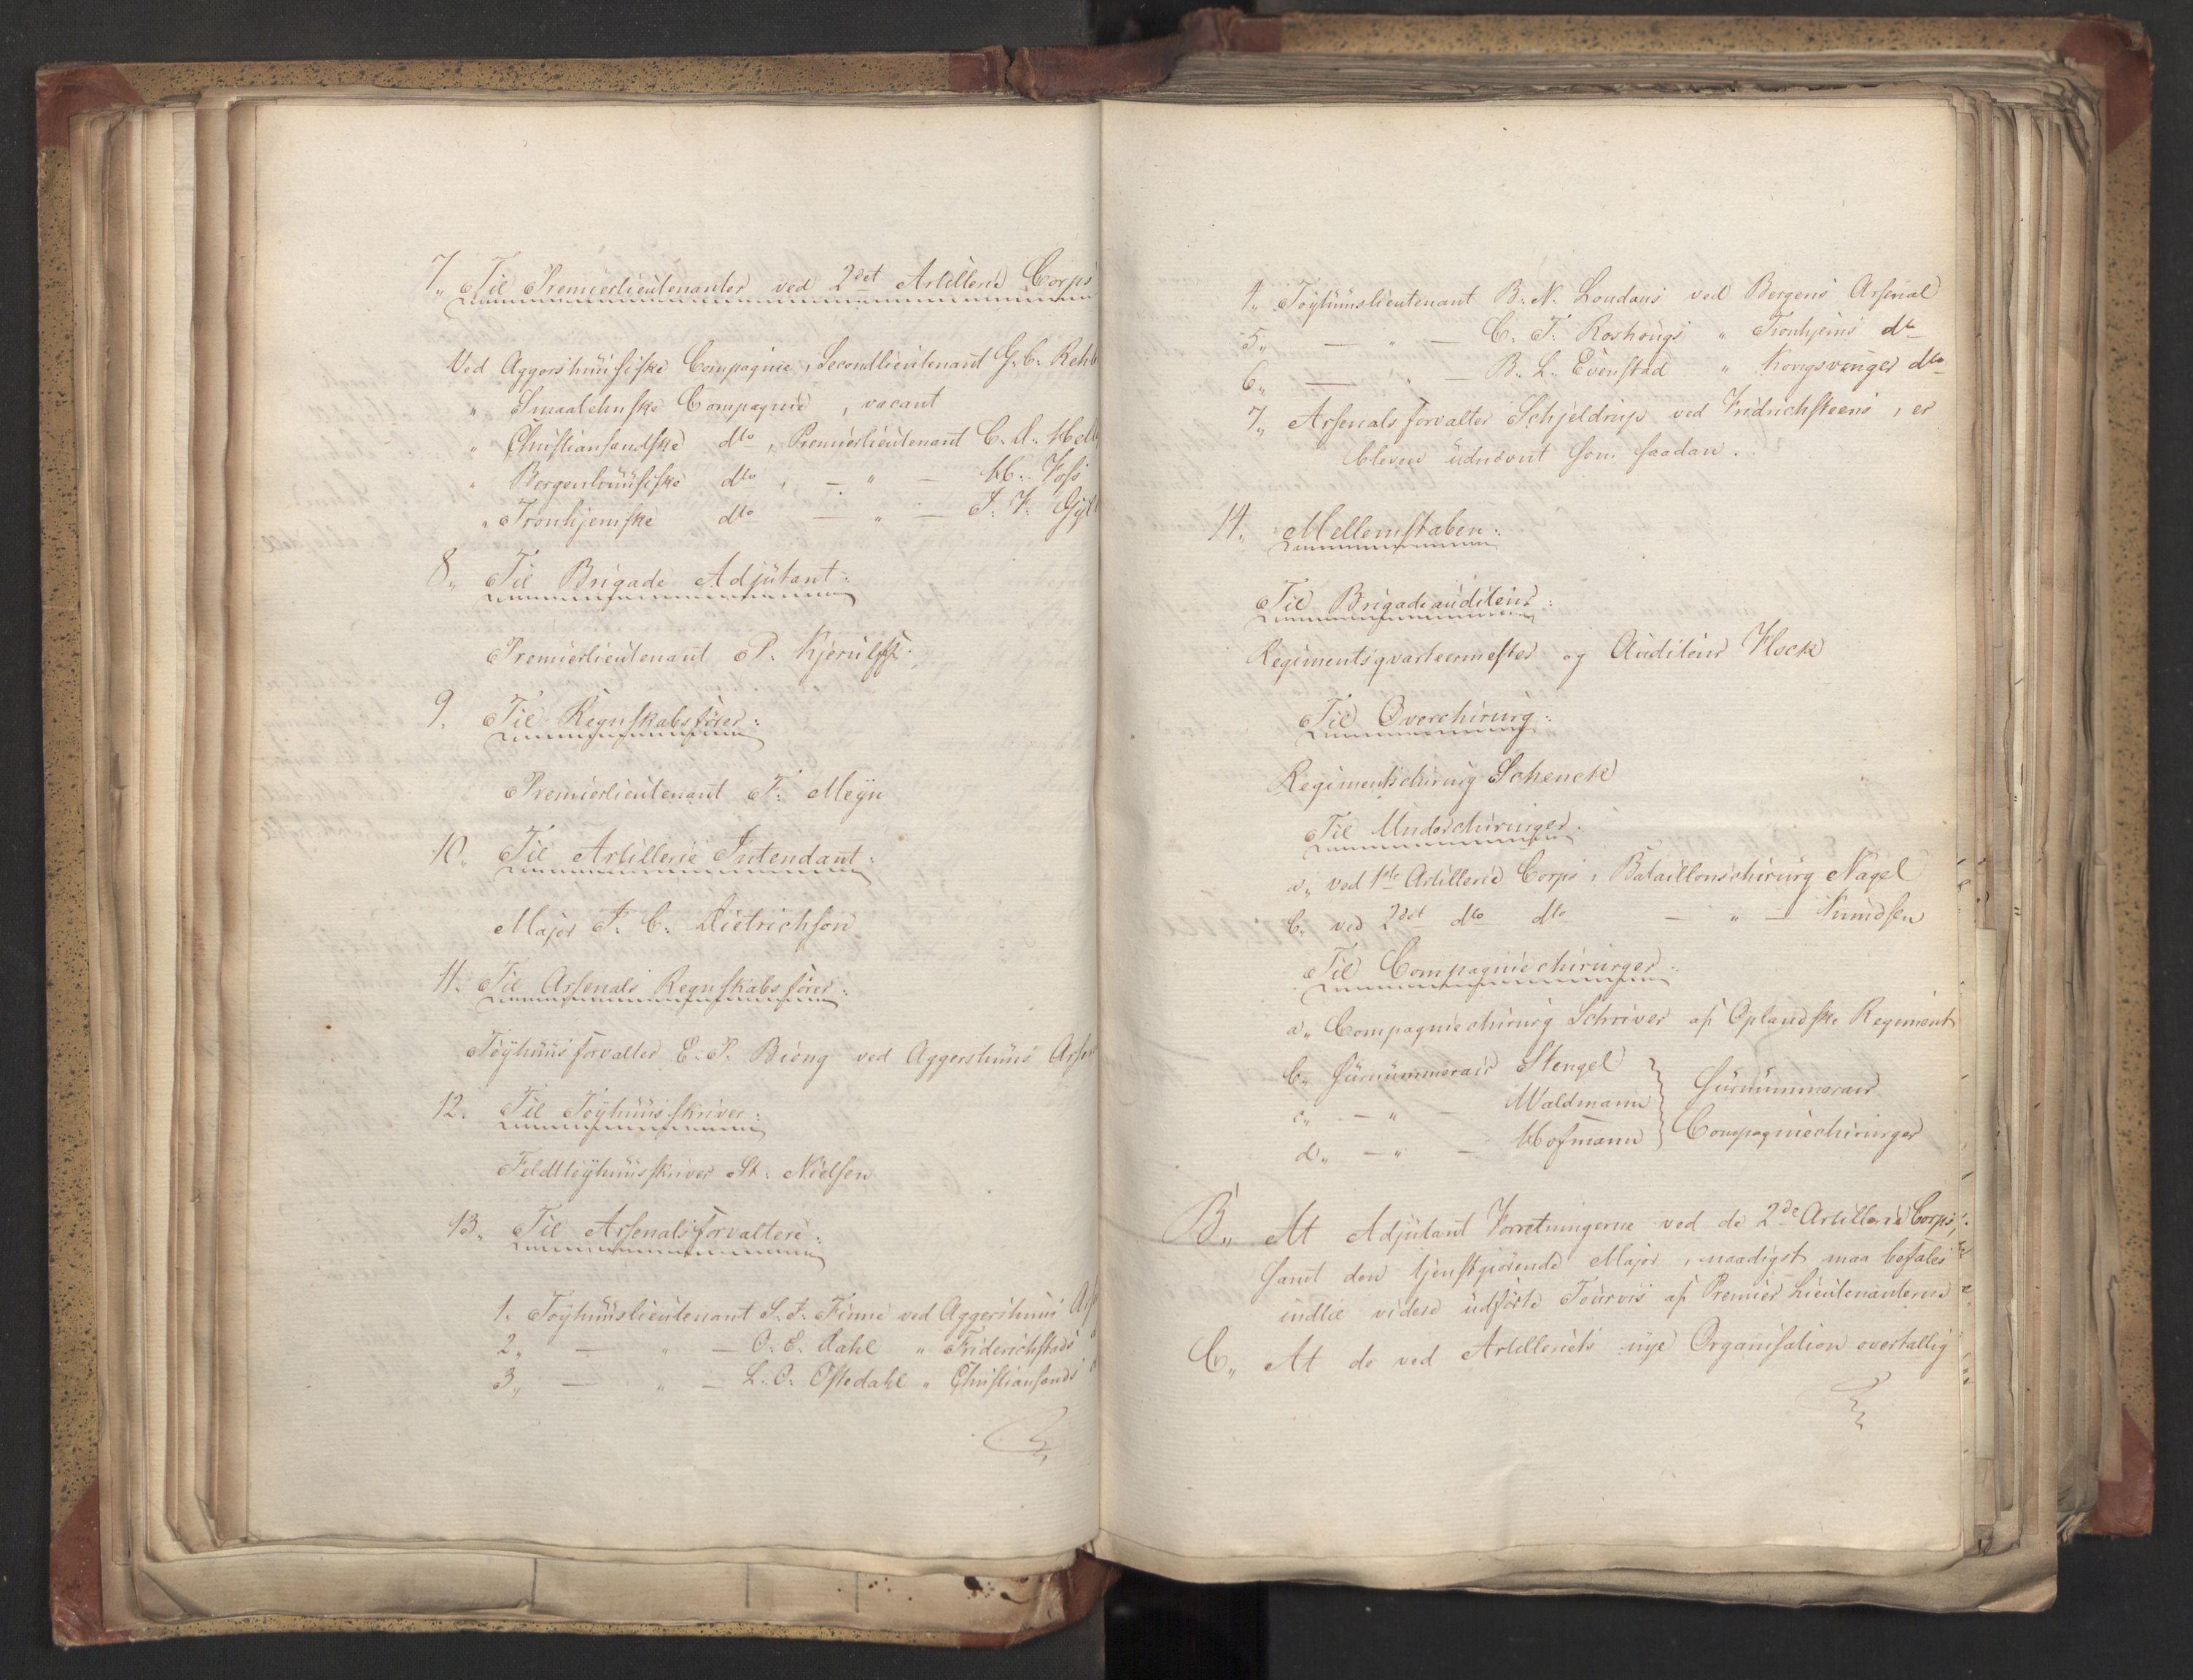 7„ Til Premierlieutenanter ved 2det Artillerie Corps
Ved Aggershuusiske Compagnie, Secondlieutenant G. C. Rehb
„ Smaalehnske Compagnie, vacant
„ Christiansandske dto, Premierlieutenant C. d.
„ Bergenhuusiske dto, — „ — Foss
„ Tronhjemske dto — „ — J. F. Gyl
8„ Til Brigade Adjutant:
Premierlieutenant P. Kjerulff.
9. Til Regnskabsfører:
Premierlieutenant F. Meyn
10„ Til Artillerie Intendant:
Major F. C. Dietrichson
11. Til Arsenals Regnskabsfører:
Tøyhuusforvalter E. P. Biong ved Aggershuus Arsen
12. Til Tøyhuusskriver:
Feldttøyhuusskriver St. Nielsen
13. Til Arsenalsforvaltere:
1. Tøyhuuslieutenant S. F. Finne ved Aggershuus Ars
2„ — „ — O. E. Dahl „ Friderichstads
3„ — „ — L. O. Oftedahl „ Christiansands
4„ Tøyhuuslieutenant B. N. Loudans ved Bergens Arsenal
5„ — „ — C. F. Roshougs „ Tronhjems dto
6„ — „ — B. L. Evenstad „ Kongsvinger dto
7„ Arsenalsforvalter Schjeldrup ved Fridrichsteens, er
bleven udnævnt som saadan.
14„ Mellemstaben:
Til Brigadeauditeur:
Regimentsqvarteermester og Auditeur Flock
Til Overchirurg:
Regimentschirurg Schenck
Til Underchirurger:
a„ ved 1ste Artillerie Corps, Bataillonschirurg Nagel
b. ved 2det dto dto — „ — Knudsen
Til Compagniechirurger:
a„ Compagniechirurg Schriver af Oplandske Regiment
b„ Surnummerair Stengel
c„ — „ — Waldmann } Surnummerair
d„ — „ — Hofmann Compagniechirurger
B„ At Adjutant Forretningerne ved de 2de Artillerie Corps,
samt den tjenstgiørende Major, naadigst maa befales
indtil videre udførte Tourvis af Premier Lieutenanterne
C„ At de ved Artilleriets nye Organisation overtallig